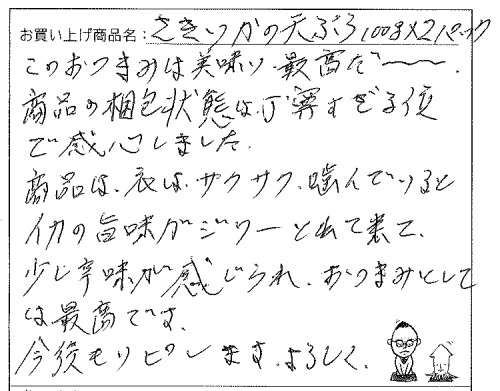 お買い上げ商品名：さきいかの天ぷら100g×2パック
このおつまみは美味い最高だ〜〜.
商品の梱包状態は、丁寧すぎる位
で感心しました.
商品は、衣は、サクサク、噛んでいると
イカの旨味がジワーとれて来て、
少し辛味が感じられ、おつまみとして
は最高です.
今後もリピします。よろしく.